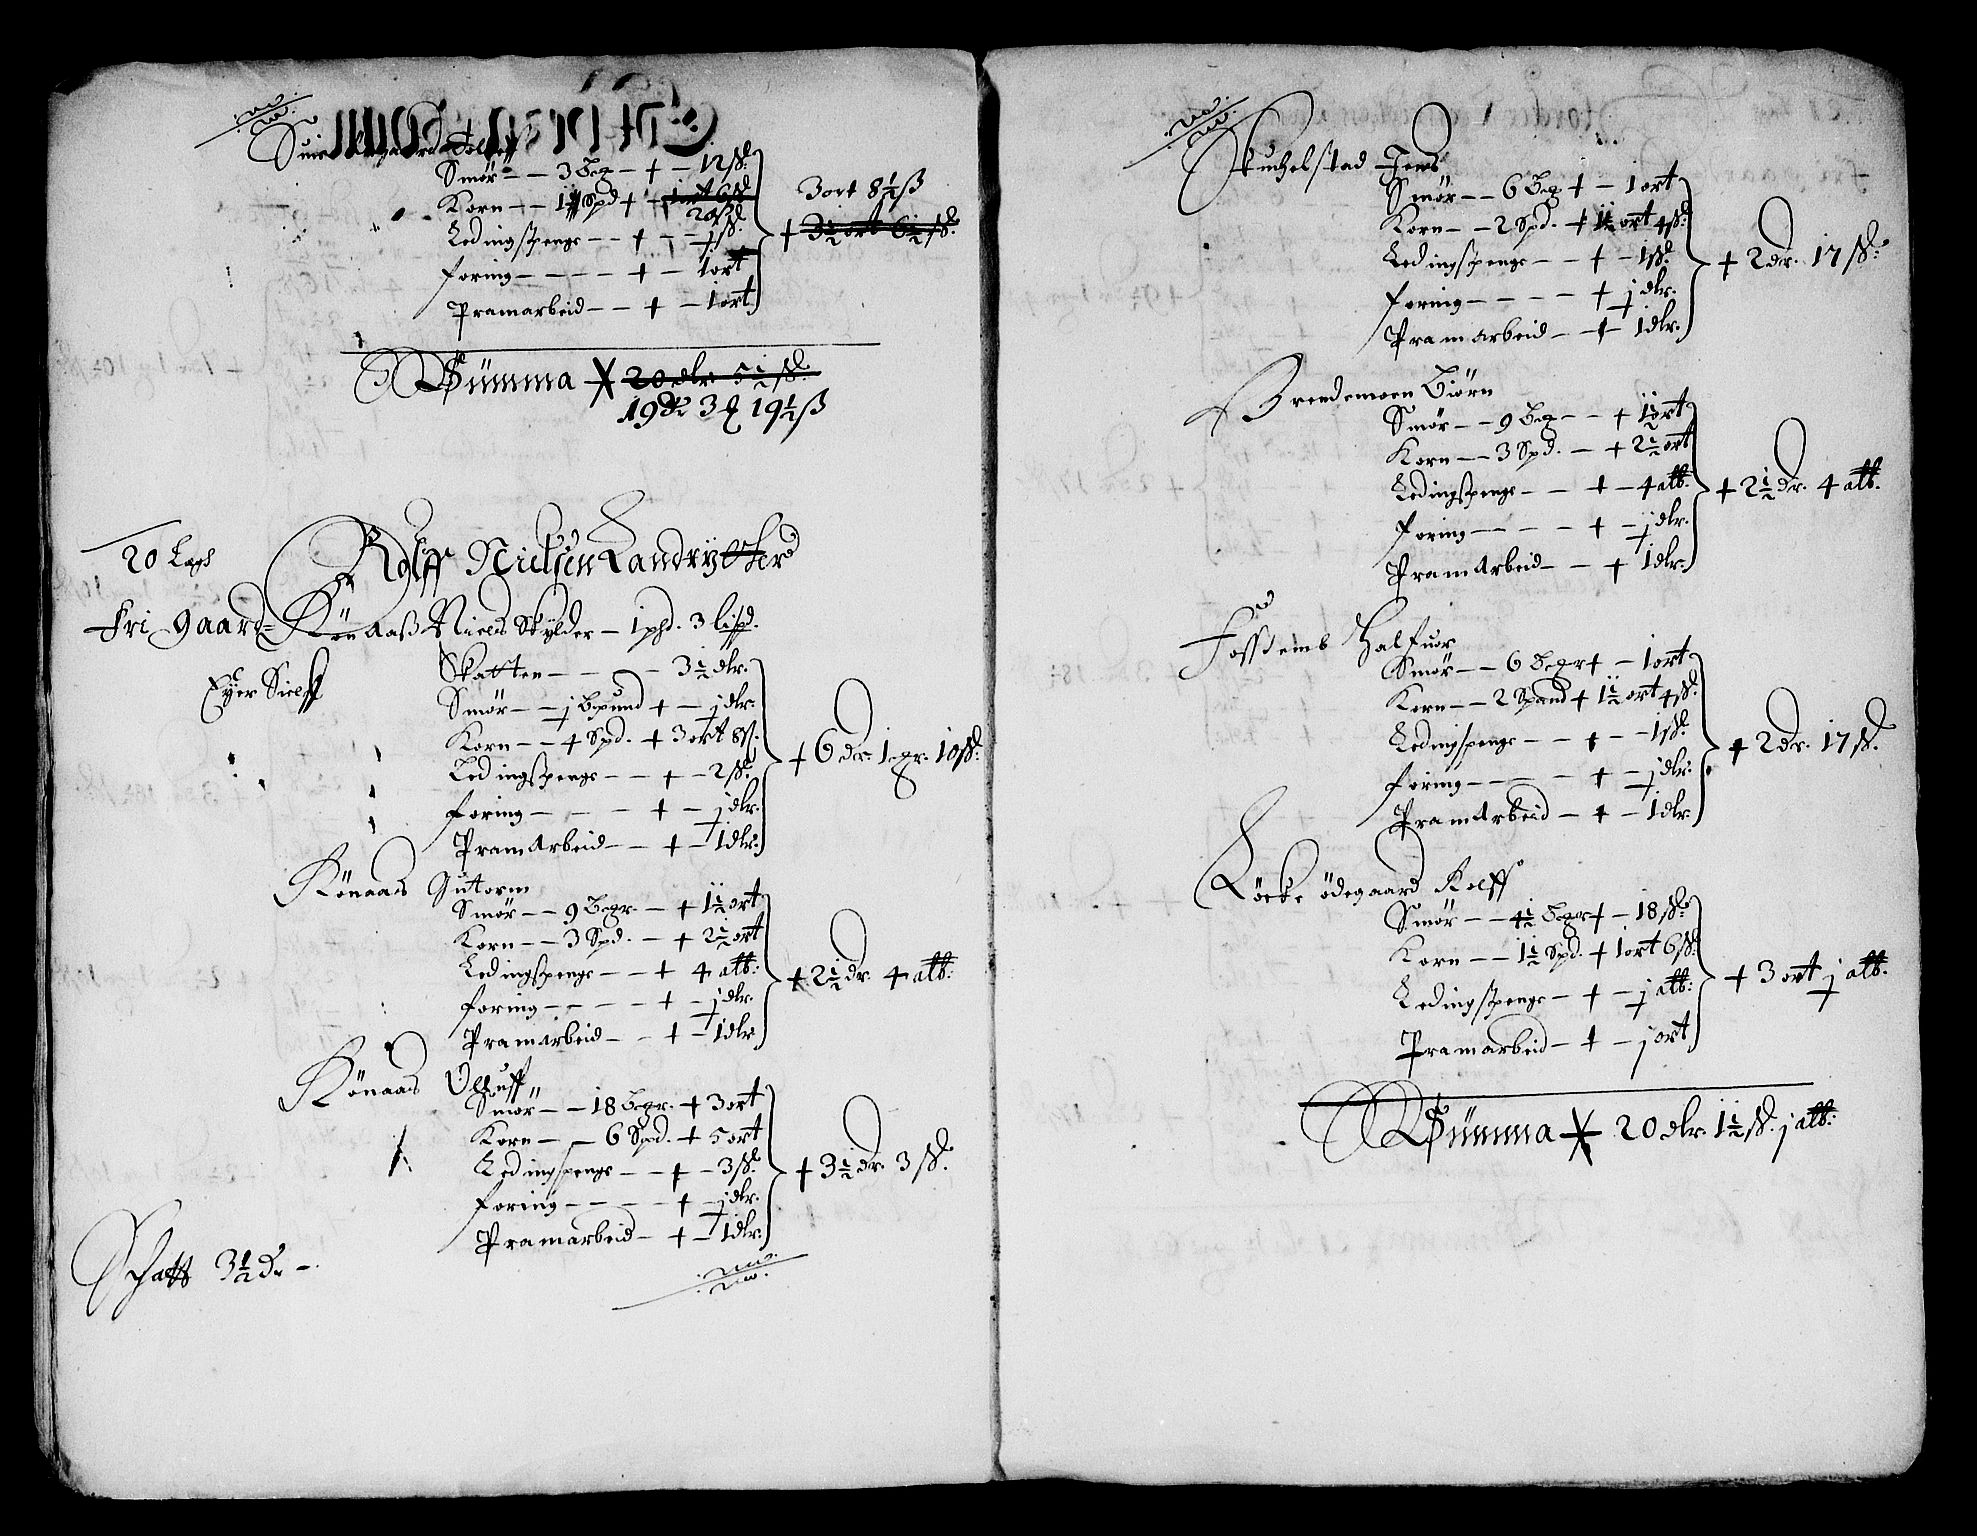 Smør — — 3 Begr — + — 12 sk.
Korn — — 1 Spd + — 1 ort 6 sk
20 sk
Ledingspenge — — + — — j sk.
foring — — — — — + — 1 ort
Pramarbeid — — + — 1 ort.
3 ort 8½ ß
+ 3½ ort 6½ sk.
Summa 20 dlr 5½ sk.
19 dr 3 q 19½ ß
20 Legh
Rolff Nielsen Landrytter
Fri gaard = Könaaß Niels Skylder — 1 phd. 3 lispd.
Eyer Sielff
Skatten — — — — 3½ dlr.
Smør — — j Bepund + — j dlr.
Korn — — 4 Spd. + 3 ort 8 sk.
Ledingspenge — — + — 2 sk.
foring — — — — + — j dlr.
Pramarbeid — — + — 1 dlr.
+ 6 dr. 1 egr. 10 sk.
Könaas Gutorm
Smør — — 9 Begr. — + 1½ ort
Korn — — 3 Spd. — + 2½ ort
Ledingspenge — — + 4 alb:
foring — — — — + — j dlr.
Pramarbeid — — + — 1 dlr
+ 2½ dr. 4 alb:
Könaas Oluff
Smør — — 18 Begr. + 3 ort
Korn — — 6 Spd. + 5 ort
Ledingspenge — — + — 3 sk.
foring — — — — + — j dlr.
Pramarbeid — + — 1 dlr.
+ 3½ dr. 3 sk.
Schatt 3½ dr —
Skuchelstad Jens
Smør — — 6 Beg + — 1 ort
Korn — — 2 Spd. + 1½ ort 4 sk.
Ledingspenge — — + — 1 sk.
foring — — — — + j dlr.
Pramarbeid — + — 1 dlr.
+ 2 dr. 17 sk.
Brendemoen Biörn
Smør — — 9 Beg — — + 1½ ort
Korn — — 3 Spd. — + 2½ ort
Ledingspenge — — + — 4 alb.
foring — — — — + — j dlr.
Pramarbeid — — + 1 dlr.
+ 2½ dr. 4 alb.
Fossemb Halfuor
Smør — — 6 Begr + — 1 ort
Korn — — 2 Spand + 1½ ort 4 sk.
Ledingspenge — — + — — 1 sk.
foring — — — — + — j dlr.
Pramarbeid — + — 1 dlr.
+ 2 dr. 17 sk.
Löcke ödegaard Rolff
Smør — — 4½ Begr + — 18 sk.
Korn — — 1½ Spd. + 1 ort 6 sk.
Ledingspenge — + — j alb:
Pramarbeid — + — j ort
+ 3 ort j alb.
Summa 20 dlr. 1½ sk. j alb: